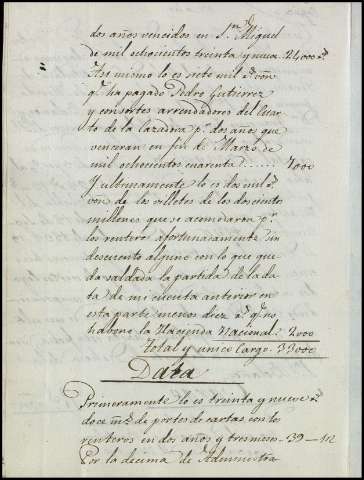 dos años vencidos en S.n Miguel
de mil ochocientos treinta y nueve 24,000 r.s
Asi mismo lo es siete mil r.s von
q.e ha pagado Pedro Gutierrez
y consortes arrendadores del Cuar
to de la Cazarra p.r dos años que
venceran en fin de Marzo de
mil ochocientos cuarenta ...... 7000
Y ultimamente lo es dos mil r.s
von de los villetes de los doscientos
millones que se acomodaron p.r
los renteros afortunadamente sin
descuento alguno con lo que que
da saldada la partida de la da
ta de mi cuenta anterior en
esta parte menos diez r.s q.e no
habono la Hacienda Nacional. 2000
Total y unico Cargo. 33000
Data
Primeramente lo es treinta y nueve r.s
doce m.s de portes de cartas con los
renteros en dos años y tres meses. 39—12
Por la decima de Administra